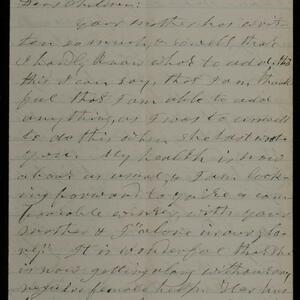 Dear Children:
Your Mother has writ-
ten so much, & so well that
I hardly know what to add. But
this I can say, that I am thank
ful that I am able to add
anything, as I was to unable
to do this when she last wrote
you. My health is now
about as usual, & I am look-
ing forward to quite a com-
fortable winter, with your
mother & I "alone in our glo-
ry." It is wonderful that she
is now getting along without any
regular female help. Her